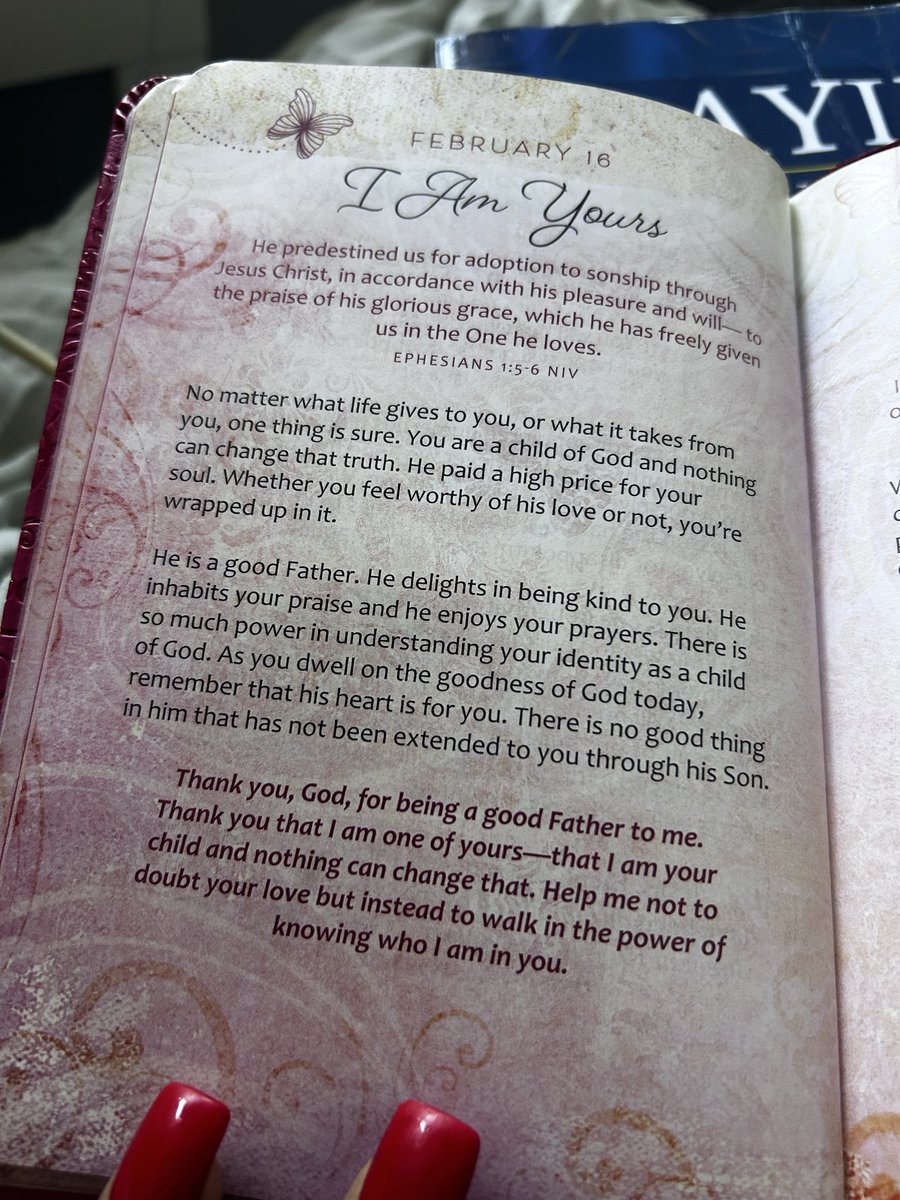 AYI
FEBRUARY 16
I Am Yours
He predestined us for adoption to sonship through
Jesus Christ, in accordance with his pleasure and will— to
the praise of his glorious grace, which he has freely given
us in the One he loves.
EPHESIANS 1:5-6 NIV
No matter what life gives to you, or what it takes from
you, one thing is sure. You are a child of God and nothing
can change that truth. He paid a high price for your
soul. Whether you feel worthy of his love or not, you’re
wrapped up in it.
He is a good Father. He delights in being kind to you. He
inhabits your praise and he enjoys your prayers. There is
so much power in understanding your identity as a child
of God. As you dwell on the goodness of God today,
remember that his heart is for you. There is no good thing
in him that has not been extended to you through his Son.
Thank you, God, for being a good Father to me.
Thank you that I am one of yours—that I am your
child and nothing can change that. Help me not to
doubt your love but instead to walk in the power of
knowing who I am in you.